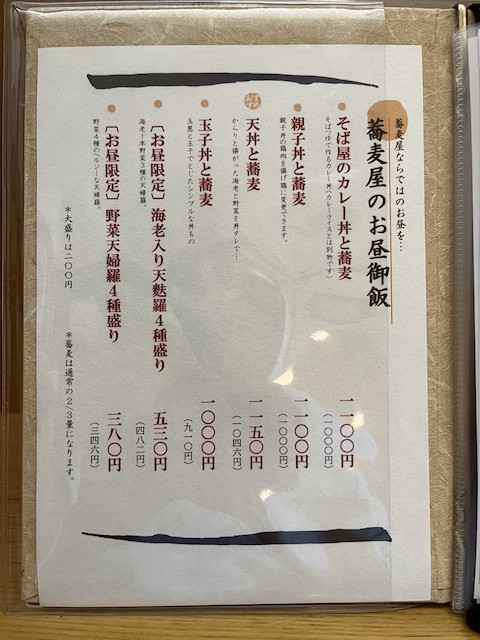 蕎麦屋ならではのお昼を…
蕎麦屋のお昼御飯
そば屋のカレー丼と蕎麦 一一〇〇円
そばつゆで作るカレー丼(カレーライスとは別物です) (一〇〇〇円)
親子丼と蕎麦 一一〇〇円
親子丼の鶏肉を揚げ鶏に変更できます。 (一〇〇〇円)
天丼と蕎麦 一一五〇円
からりと揚がった海老と野菜を丼タレで… (一〇四六円)
玉子丼と蕎麦 一〇〇〇円
玉葱と玉子でとじたシンプルな丼もの (九一〇円)
[お昼限定]海老入り天麩羅4種盛り 五三〇円
海老1本野菜3種の天婦羅。 (四八二円)
[お昼限定]野菜天婦羅4種盛り 三八〇円
野菜4種のヘルシーな天婦羅。 (三四六円)
*大盛りは二〇〇円 *蕎麦は通常の2/3量になります。